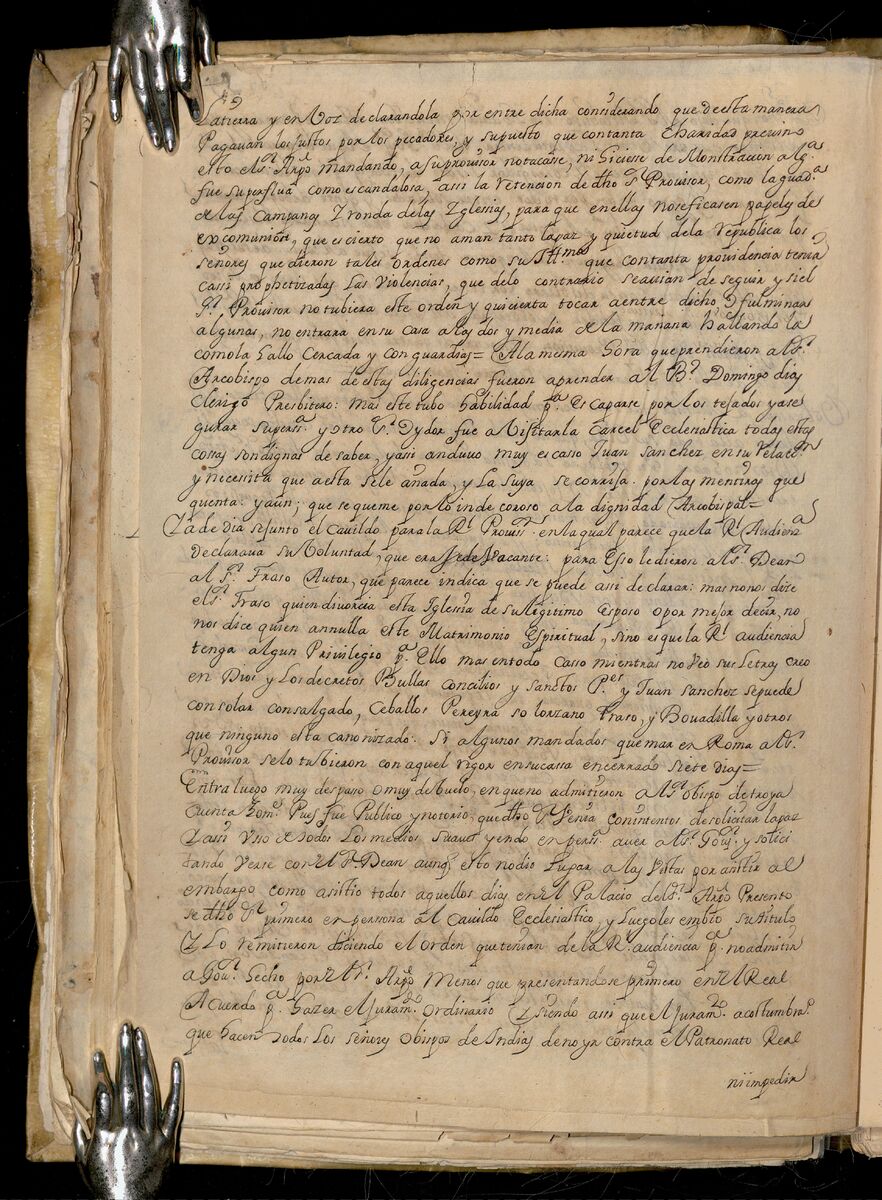 La tierra y en voz declarandola por entre dicha considerando que deesta manera
Pagavan los justos por los pecadores, y supuesto que contanta Charidad previno
esto el Sr. Arpo mandando, a su provisor notacase, ni Giciesse de Monstracion alg.a
fue superflua como escandalosa, assi la retencion de dho Sr Provisor, como la guad.a
de las Campanas I ronda delas Iglesias, para que enellas nosefixasen papeles de
excomunion, que escierto que no aman tanto lapaz y quietud dela republica los
señores que dieron tales ordenes como su Ill.ma que contanta providencia tenia
cassi prophetizadas Las violencias, que delo contrario seavian de seguir y siel
Sr. Provisor no tubiera este orden y quisiera tocar aentre dicho, o fulminar
algunas, no entrara en su casa a las dos y media de la mañana hallando la
como la Gallo Cercada y con guardias = A la mesma Gora que prendieron al Sr.
Arcobispo demas de estas diligencias fueron aprender al B.r Domingo dias
clerigo Presbitero: mas este tubo habilidad p.a Escaparse por los tejados y ase
gurar su pers.a y otro Sr. Oydor fue a Visitar la Carcel Ecclesiastica todas estas
cosas son dignas de saber, y assi anduvo muy escasso Juan Sanchez en su relacon
y necesita que aesta sele añada, y La suya se corrija por las mentiras que
quenta: y aun; que se queme por lo indecoroso a la dignidad Arcobispal =
Ia de Dia se junto el cavildo para la Rl Provisn. en la qual parece que la Rl Audienza
declarava su Voluntad, que era Sede Vacante: para Esso le dieron al Sr. Dean
al Sr. Fraso Autor, que parece indica que se puede assi declarar: mas nonos dize
el Sr. Fraso quien divorcia esta Iglesia de su legitimo Esposo o por mejor decir, no
nos dice quien annulla este Matrimonio Espiritual, sino es que la Rl audiencia
tenga algun Privilegio p.a Ello mas entodo casso mientras no veo sus Letras creo
en Dios y Los decretos Bullas Concilios y sanctos P.es y Juan sanchez sepuede
consolar consalgado, Ceballos Pereyra solorzano fraso, y Bovadilla y otros
que ninguno esta canonizado: Si algunos mandados quemar en Roma al Sr.
Provisor se lo tubieron con aquel rigor en su cassa encerrado siete dias =
Entra luego muy despasso o muy de buelo, en que no admitieron al Sr obispo de troya
cuenta Pues fue Publico y notorio, que dho Sr Venia con intentos de solicitar la paz
I assi Uso de todos Los medios suaves yendo en pers.a aver al Sr. Gov.r y solici
tando Verse con El Sr. Dean aunq esto no dio Lugar a las Vistas por asistir al
embargo como asistio todos aquellos dias en El Palacio del Sr. Arpo Presento
se dho Sr primero en persona al Cavildo Ecclesiastico, y Luego les embio su titulo
I Lo remitieron diciendo el orden que tenian de la Rl audiencia p.a no admitir
a Gov.r Gecho por El Sr. Arpo Menos que presentandose primero en El Real
Acuerdo p.a Gazer el juram.to ordinario I siendo assi que el juram.to acostumbra.o
que hacen todos Los señores obispos de Indias de no yr contra el Patronato Real
ni impedir